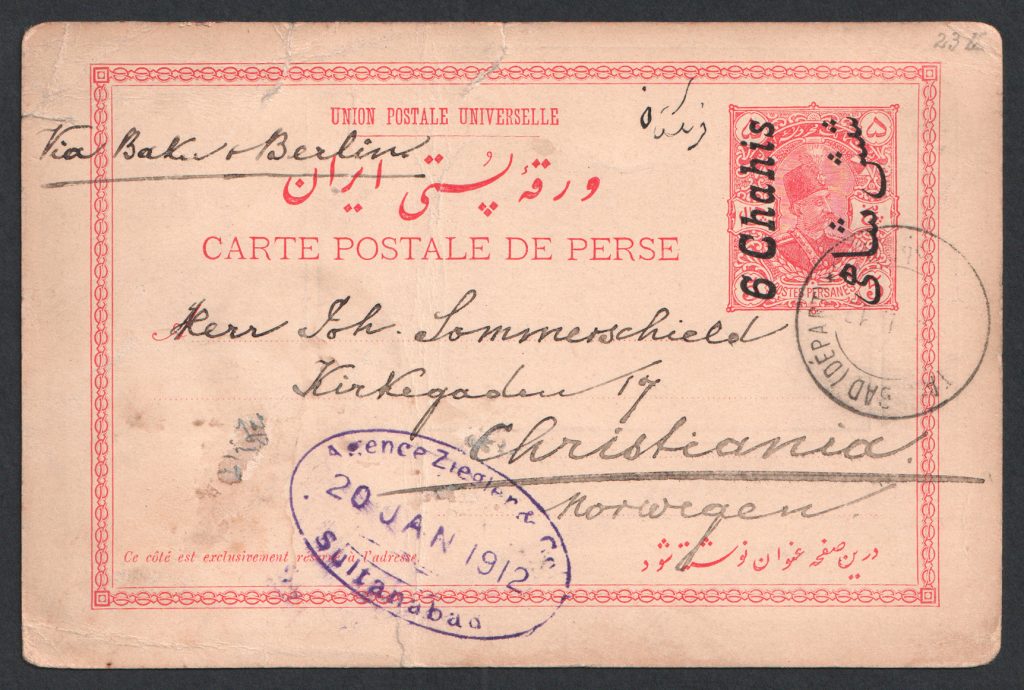 UNION POSTALE UNIVERSELLE
Via Baku & Berlin
ورقهٔ پستی ایران
CARTE POSTALE DE PERSE
فرنگستان
۵
6 Chahis
شش شاهی
POSTES PERSANES
Herr Joh. Sommerschield
Kirkegaden 17
Christiania.
Norwegen.
(DÉPART
Agence Ziegler & Co.
20 JAN 1912
Sultanabad
Ce côté est exclusivement réservé à l'adresse.
درین صفحه عنوان نوشته شود